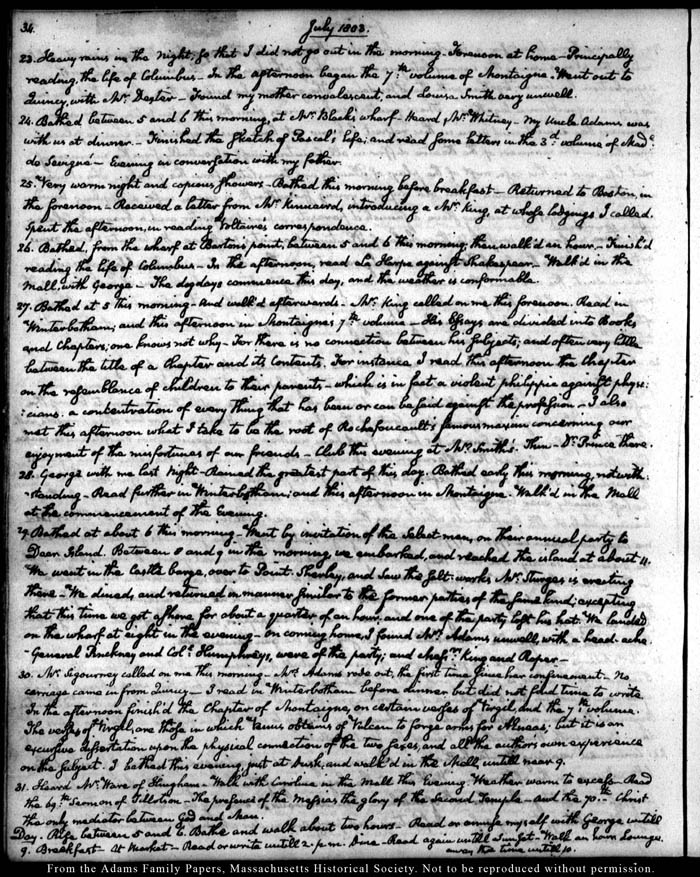 34. July 1803.
23. Heavy rains in the night, so that I did not go out in the morning. Forenoon at home - Principally
reading, the life of Columbus - In the afternoon began the 7.th volume of Montaigne. Went out to
Quincy, with Mr. Dexter - Found my mother convalescent, and Louisa Smith very unwell.
24. Bathed between 5 and 6 this morning, at Mr. Black's wharf - Heard, Mr. Whitney - My Uncle Adams, was
with us at dinner. - Finished the sketch of Pascal's life; and read some letters in the 3.d volume of Mad.e
de Sevigné - Evening in conversation with my father.
25. Very warm night and copious showers - Bathed this morning before breakfast - Returned to Boston, in
the forenoon - Received a letter from Mr. Kinnaird, introducing a Mr. King, at whose lodgings I called.
Spent the afternoon, in reading Voltaire's correspondence.
26. Bathed, from the wharf at Barton's point, between 5 and 6 this morning, then walk'd an hour. - Finish'd
reading the life of Columbus - In the afternoon, read La Harpe against Shakespear. - Walk'd in the
Mall, with George - The dog days commence this day, and the weather is conformable.
27. Bathed at 5 this morning - And walk'd afterwards - Mr. King called on me this forenoon. Read in
Winterbotham; and this afternoon in Montaigne's 7.th volume - His Essays are divided into Books
and Chapters; one knows not why - For there is no connection between his subjects; and often very little
between the title of a Chapter and its Contents. For instance I read this afternoon the Chapter
on the resemblance of children to their parents - which is in fact a violent philippic against physi:
:cians. a concentration of every thing that has been or can be said against the profession - I also
met this afternoon what I take to be the root of Rochefoucault's famous maxim concerning our
enjoyment of the misfortunes of our friends - Club this evening at Mr. Smith's. Thin - Dr. Prince there.
28. George with me last night - Rained the greatest part of this day. Bathed early this morning, notwith:
:standing - Read further in Winterbotham; and this afternoon in Montaigne. Walk'd in the Mall
at the commencement of the Evening.
29. Bathed at about 6 this morning - Went by invitation of the Select men, on their annual party to
Deer Island. Between 8 and 9 in the morning, we embarked, and reached the island at about 11.
We went in the Castle barge, over to Point Shirley, and saw the salt-works Mr. Sturges is erecting
there - We dined, and returned in manner similar to the former parties of the same kind; excepting
that this time we got ashore for about a quarter of an hour, and one of the party left his hat. We landed
on the wharf at eight in the evening - on coming home, I found Mrs. Adams unwell, with a head-ache
General Pinckney and Col.l Humphreys, were of the party; and Mess.rs King and Roper -
30. Mr. Segourney called on me this morning - Mrs. Adams rode out, the first time since her confinement - No
carriage came in from Quincy - I read in Winterbotham before dinner but did not find time to write.
In the afternoon finish'd the Chapter of Montaigne, on certain verses of Virgil, and the 7.th volume.
The verses of Virgil, are those in which Venus obtains of Vulcan to forge arms for AEneas; but it is an
excursive dissertation upon the physical connection of the two sexes, and all the authors own experience
on the subject. I bathed this evening, just at dusk, and walk'd in the Mall, untill near 9.
31. Heard Mr. Ware of Hingham - Walk with Caroline in the Mall this Evening. Weather warm to excess - Read
the 69.th Sermon of Tillotson - The presence of the Messias the glory of the Second Temple - and the 70.th Christ
the only mediator between God and Man.
Day. Rise between 5 and 6. Bathe and walk about two hours - Read or amuse myself with George untill
9. Breakfast - At Market - Read or write untill 2. p.m. Dine - Read again untill Sunset - Walk an hour. Lounge
away the time untill 10.
From the Adams Family Papers, Massachusetts Historical Society. Not to be reproduced without permission.